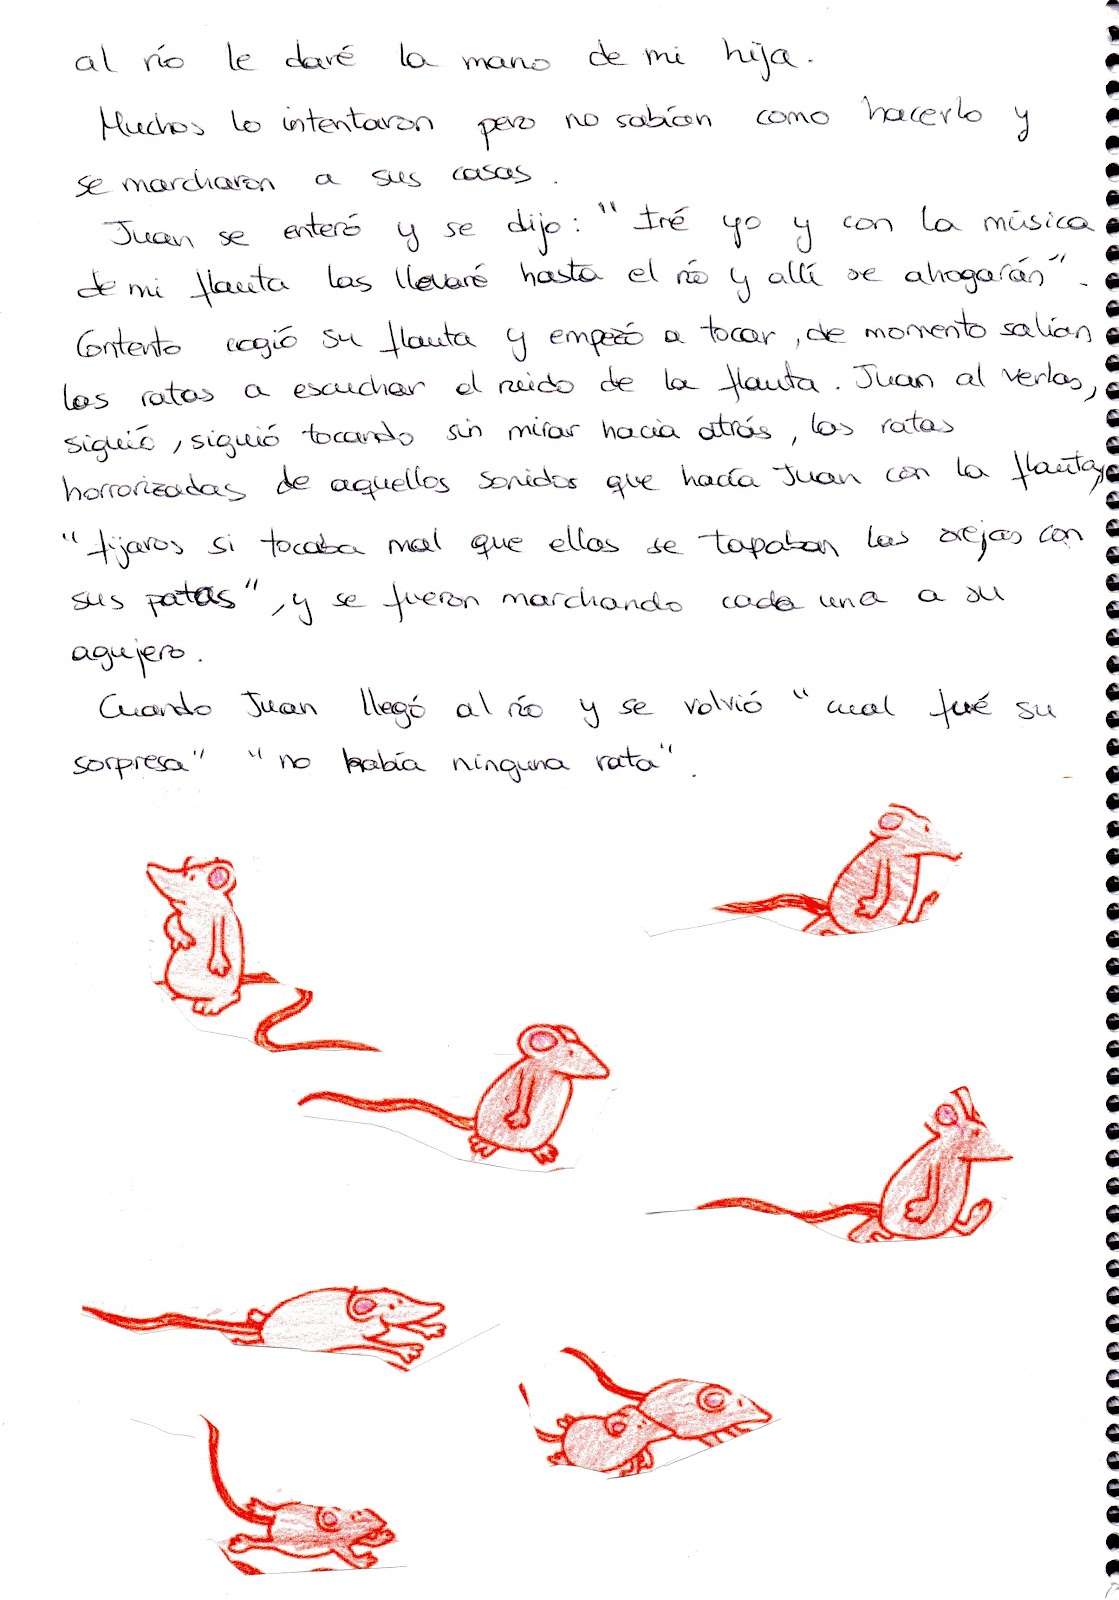 al río le daré la mano de mi hija.
Muchos lo intentaron pero no sabían como hacerlo y
se marcharon a sus casas.
Juan se enteró y se dijo: "Iré yo y con la música
de mi flauta las llevaré hasta el río y allí se ahogarán".
Contento cogió su flauta y empezó a tocar, de momento salían
las ratas a escuchar el ruido de la flauta. Juan al verlas,
siguió, siguió tocando sin mirar hacia atrás, las ratas
horrorizadas de aquellos sonidos que hacía Juan con la flauta,
"fijaros si tocaba mal que ellas se tapaban las orejas con
sus patas", y se fueron marchando cada una a su
agujero.
Cuando Juan llegó al río y se volvió "cual fué su
sorpresa" "no había ninguna rata".